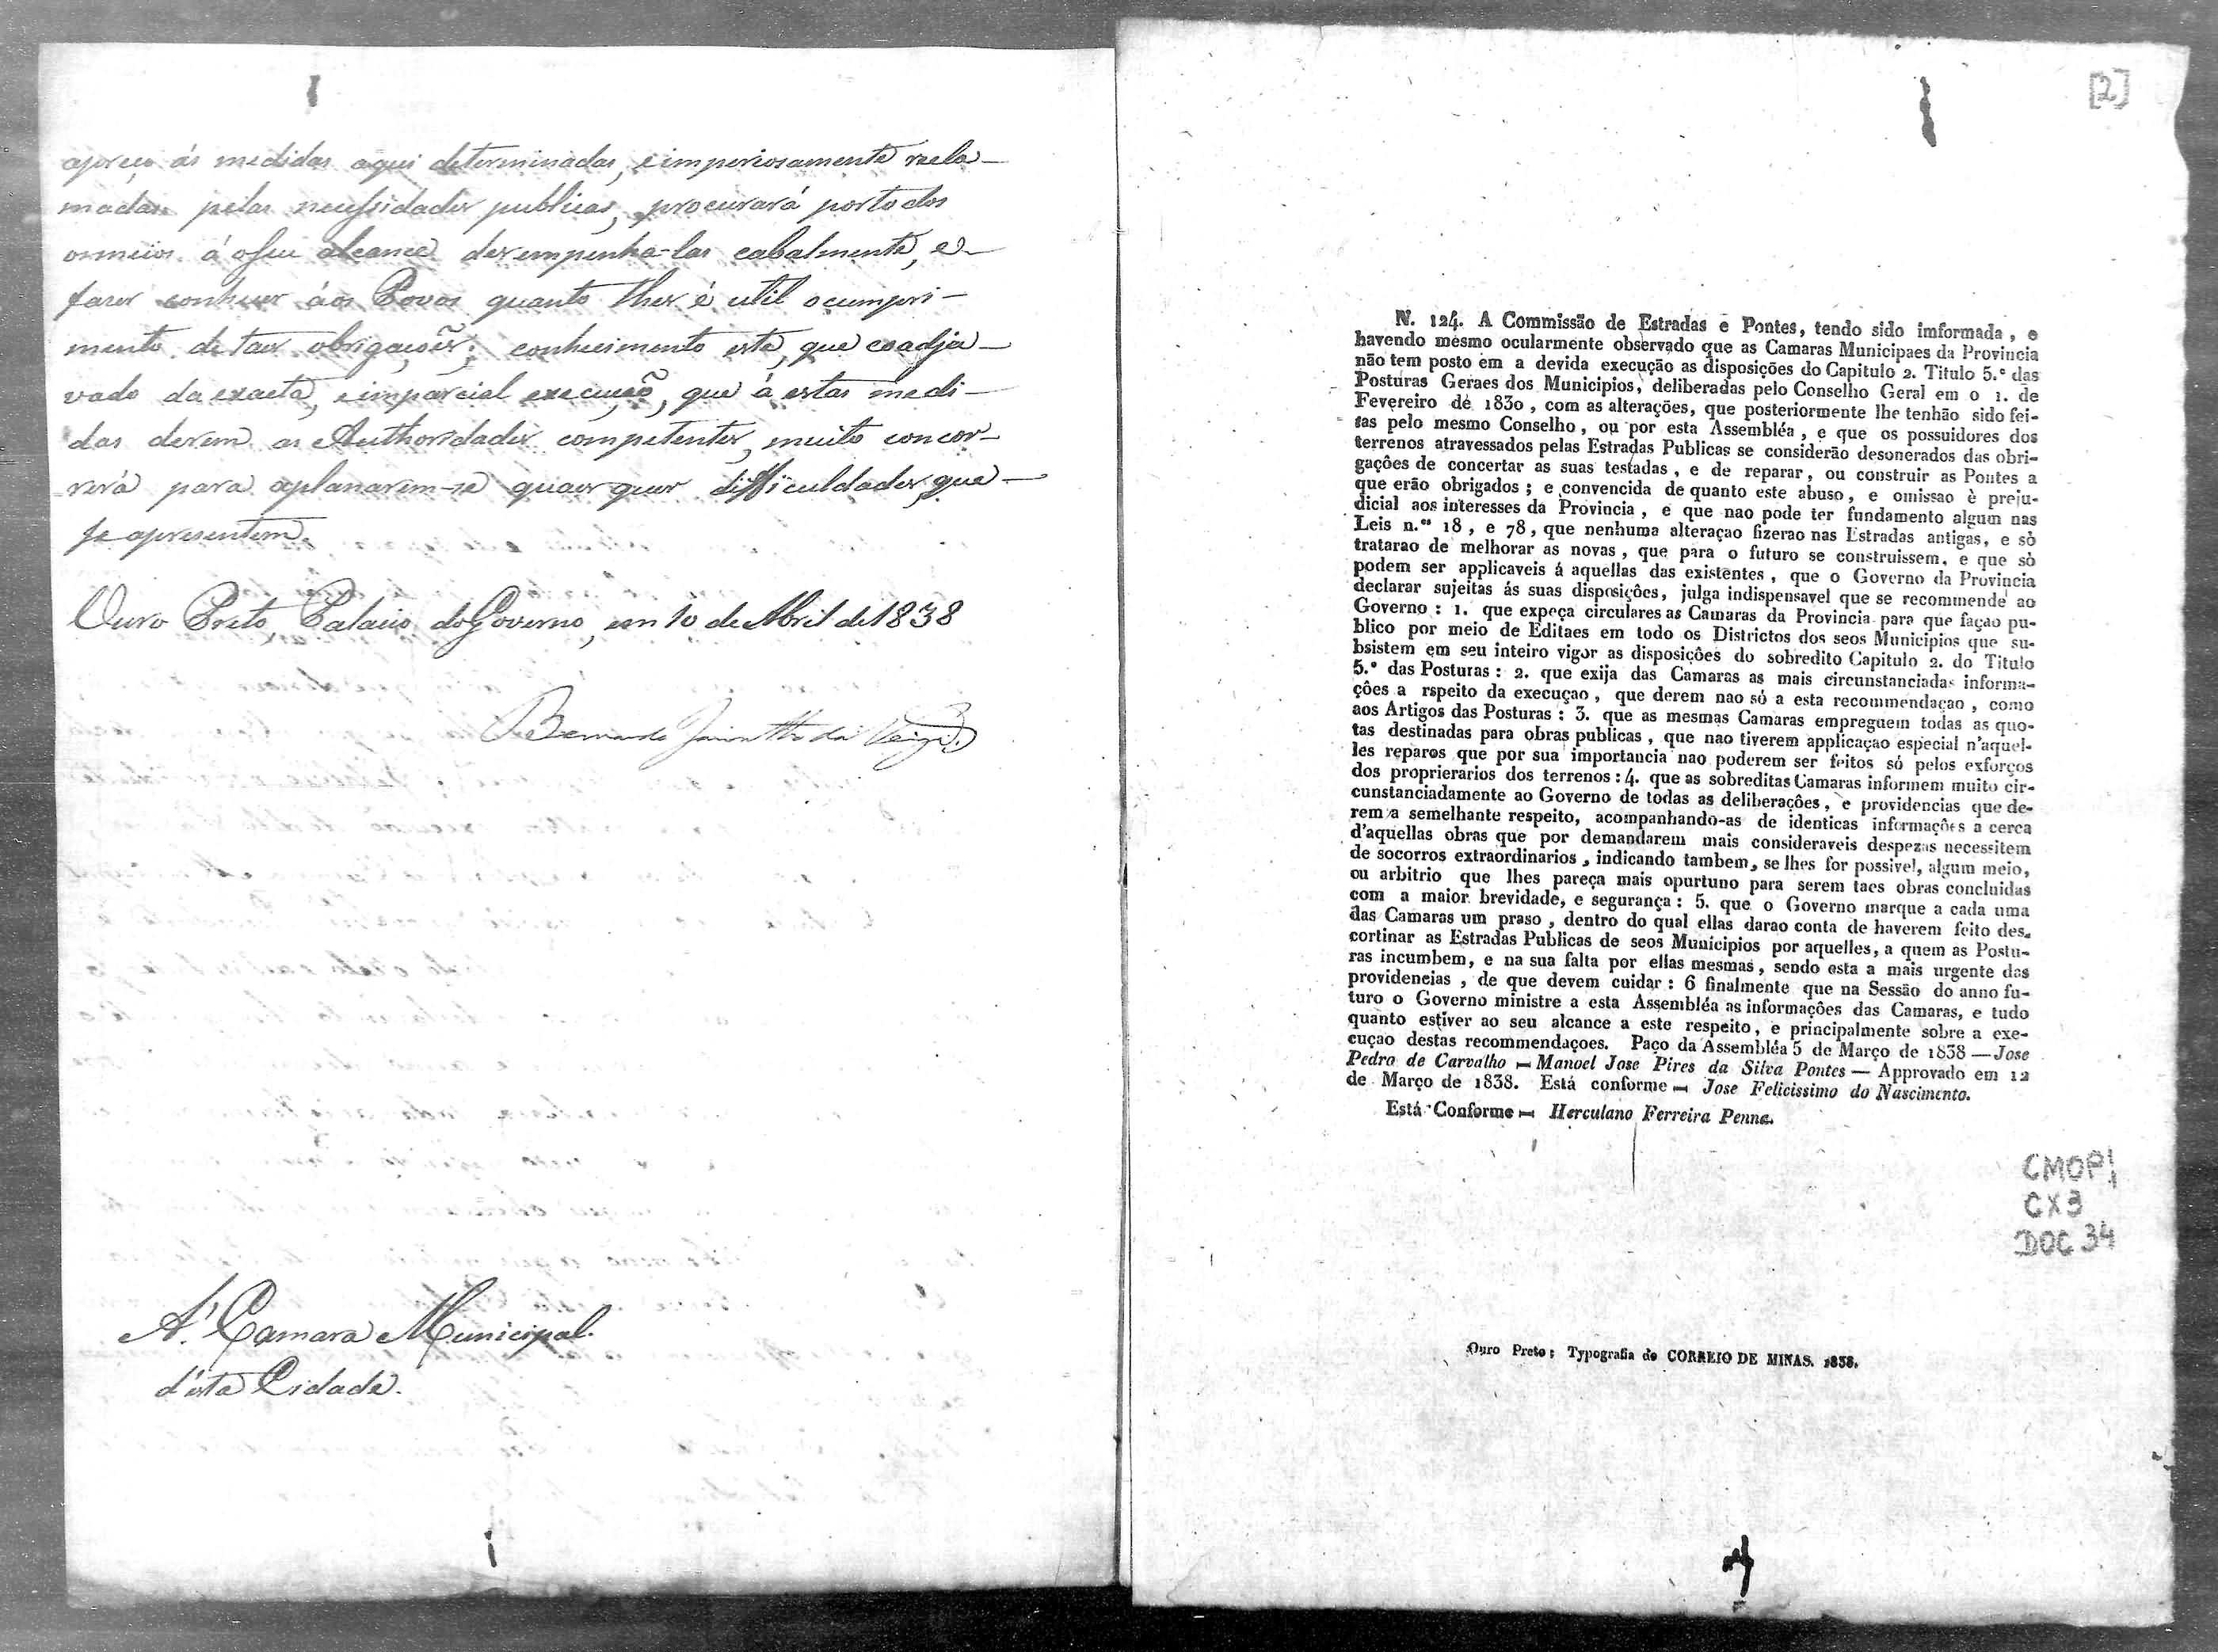 apreço ás medidas aqui determinadas, e imperiosamente recla-
madas pelas necessidades publicas, procurará por todos
os meios á o seu alcance desempenha-las cabalmente, e
fazer conhecer áos Povos quanto lhes é util o cumpri-
mento de taes obrigações; conhecimento este, que coadju-
vado da exacta, e imparcial execução, que á estas medi-
das derem as Authoridades competentes, muito concor-
rerá para aplanarem-se quaes quer difficuldades, que
se apresentem.
Ouro Preto, Palacio do Governo, em 10 de Abril de 1838
Bernardo Jacintho da Veiga.
A' Camara Municipal
d'esta Cidade.
[2]
N. 124. A Commissão de Estradas e Pontes, tendo sido imformada, e
havendo mesmo ocularmente observado que as Camaras Municipaes da Provincia
não tem posto em a devida execução as disposições do Capitulo 2. Titulo 5.º das
Posturas Geraes dos Municipios, deliberadas pelo Conselho Geral em o 1. de
Fevereiro de 1830, com as alterações, que posteriormente lhe tenhão sido fei-
tas pelo mesmo Conselho, ou por esta Assembléa, e que os possuidores dos
terrenos atravessados pelas Estradas Publicas se considerão desonerados das obri-
gações de concertar as suas testadas, e de reparar, ou construir as Pontes a
que erão obrigados; e convencida de quanto este abuso, e omissao è preju-
dicial aos interesses da Provincia, e que nao pode ter fundamento algum nas
Leis n.os 18, e 78, que nenhuma alteraçao fizerao nas Estradas antigas, e sò
tratarao de melhorar as novas, que para o futuro se construissem, e que sò
podem ser applicaveis á aquellas das existentes, que o Governo da Provincia
declarar sujeitas ás suas disposições, julga indispensavel que se recommende ao
Governo: 1. que expeça circulares as Camaras da Provincia para que façao pu-
blico por meio de Editaes em todo os Districtos dos seos Municipios que su-
bsistem em seu inteiro vigor as disposições do sobredito Capitulo 2. do Titulo
5.º das Posturas: 2. que exija das Camaras as mais circunstanciadas informa-
ções a rspeito da execuçao, que derem nao só a esta recommendaçao, como
aos Artigos das Posturas: 3. que as mesmas Camaras empreguem todas as quo-
tas destinadas para obras publicas, que nao tiverem applicaçao especial n'aquel-
les reparos que por sua importancia nao poderem ser feitos só pelos exforços
dos proprierarios dos terrenos: 4. que as sobreditas Camaras informem muito cir-
cunstanciadamente ao Governo de todas as deliberações, e providencias que de-
rem a semelhante respeito, acompanhando-as de identicas informações a cerca
d'aquellas obras que por demandarem mais consideraveis despezas necessitem
de socorros extraordinarios, indicando tambem, se lhes for possivel, algum meio,
ou arbitrio que lhes pareça mais opurtuno para serem taes obras concluidas
com a maior brevidade, e segurança: 5. que o Governo marque a cada uma
das Camaras um praso, dentro do qual ellas darao conta de haverem feito des-
cortinar as Estradas Publicas de seos Municipios por aquelles, a quem as Postu-
ras incumbem, e na sua falta por ellas mesmas, sendo esta a mais urgente das
providencias, de que devem cuidar: 6 finalmente que na Sessão do anno fu-
turo o Governo ministre a esta Assembléa as informações das Camaras, e tudo
quanto estiver ao seu alcance a este respeito, e principalmente sobre a exe-
cuçao destas recommendaçoes. Paço da Assembléa 5 de Março de 1838 — Jose
Pedro de Carvalho — Manoel Jose Pires da Silva Pontes — Approvado em 12
de Março de 1838. Está conforme — Jose Felicissimo do Nascimento.
Está Conforme — Herculano Ferreira Penna.
CMOP1
CX3
DOC 34
Ouro Preto: Typografia do CORREIO DE MINAS. 1838.